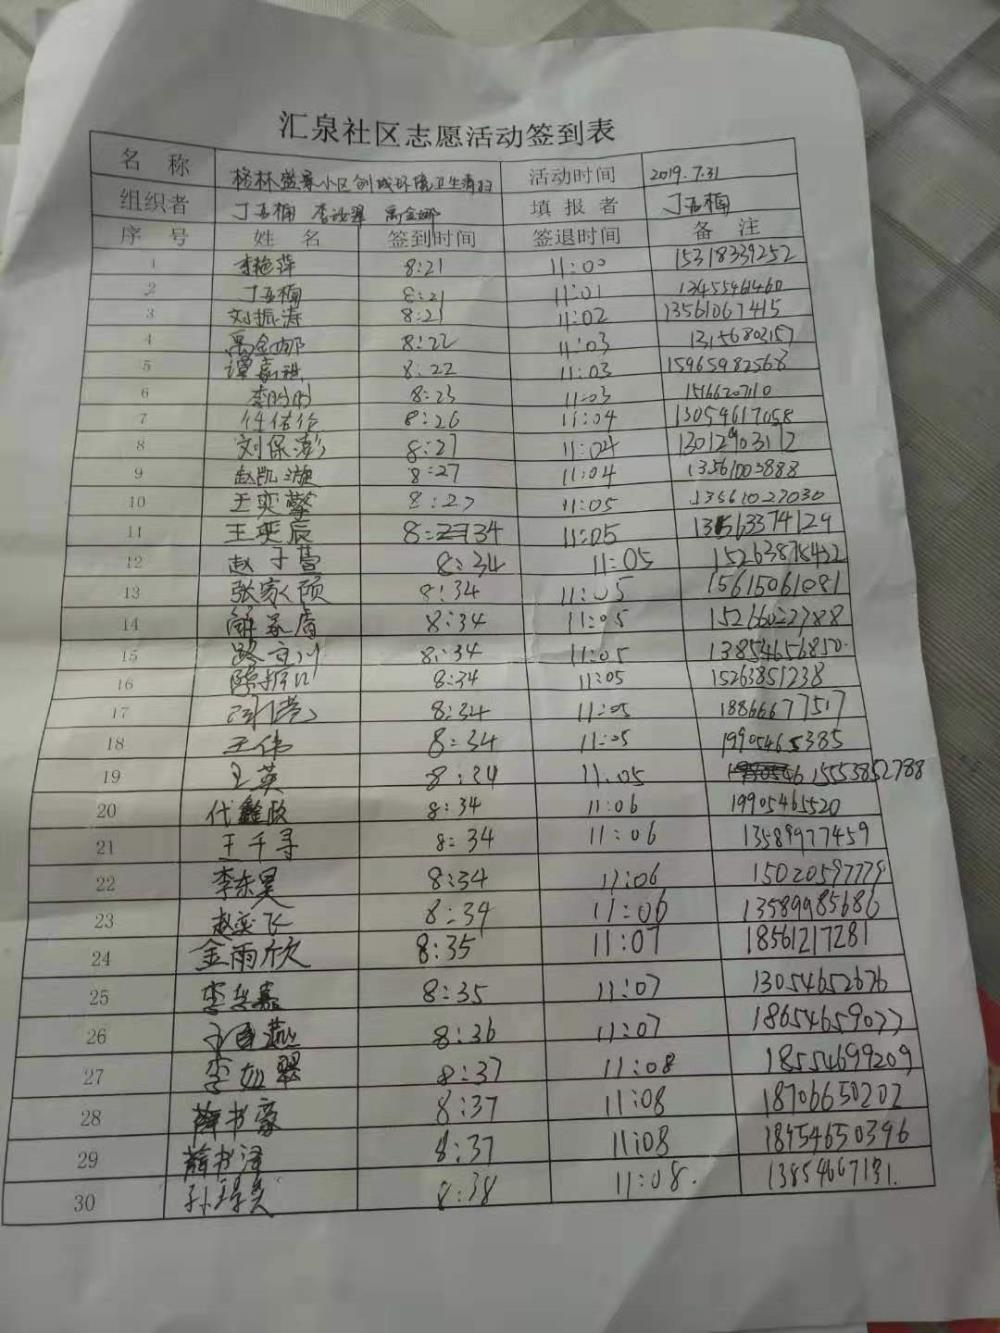 汇泉社区志愿活动签到表
名 称 格林盛景小区创城环境卫生清扫 活动时间 2019.7.31
组织者 丁玉楠 禹金娜 填报者 丁玉楠
序 号 姓 名 签到时间 签退时间 备 注
1 李艳萍 8:21 11:00 15318339252
2 丁玉楠 8:21 11:01 13455461460
3 刘振涛 8:21 11:02 13561067415
4 禹金娜 8:22 11:03 13156803157
5 谭嘉祺 8:22 11:03 15965982568
6 8:23 11:03
7 8:26 11:04 13054617058
8 刘保澎 8:27 11:04 13012903112
9 赵凯漩 8:27 11:04 13561005888
10 王奕擎 8:27 11:05 13561027030
11 王奕辰 8:34 11:05 13563374129
12 赵子萱 8:34 11:05
13 张家硕 8:34 11:05 15615061081
14 解家膺 8:34 11:05 15266022788
15 路京川 8:34 11:05 13854656850
16 8:34 11:05 15263851238
17 8:34 11:05 18866677517
18 王伟 8:34 11:05 19905465385
19 王英 8:34 11:05 15553852788
20 代鑫政 8:34 11:06 19905465520
21 王千寻 8:34 11:06 13589977459
22 李东昊 8:34 11:06 15020597779
23 赵奕飞 8:34 11:06 13589985686
24 金雨欣 8:35 11:07 18561217281
25 8:35 11:07 13054652676
26 8:36 11:07 18654659077
27 李如翠 8:37 11:08 18554699209
28 薛书豪 8:37 11:08 18706650202
29 薛书泽 8:37 11:08 18454650396
30 8:38 11:08. 13854667131.